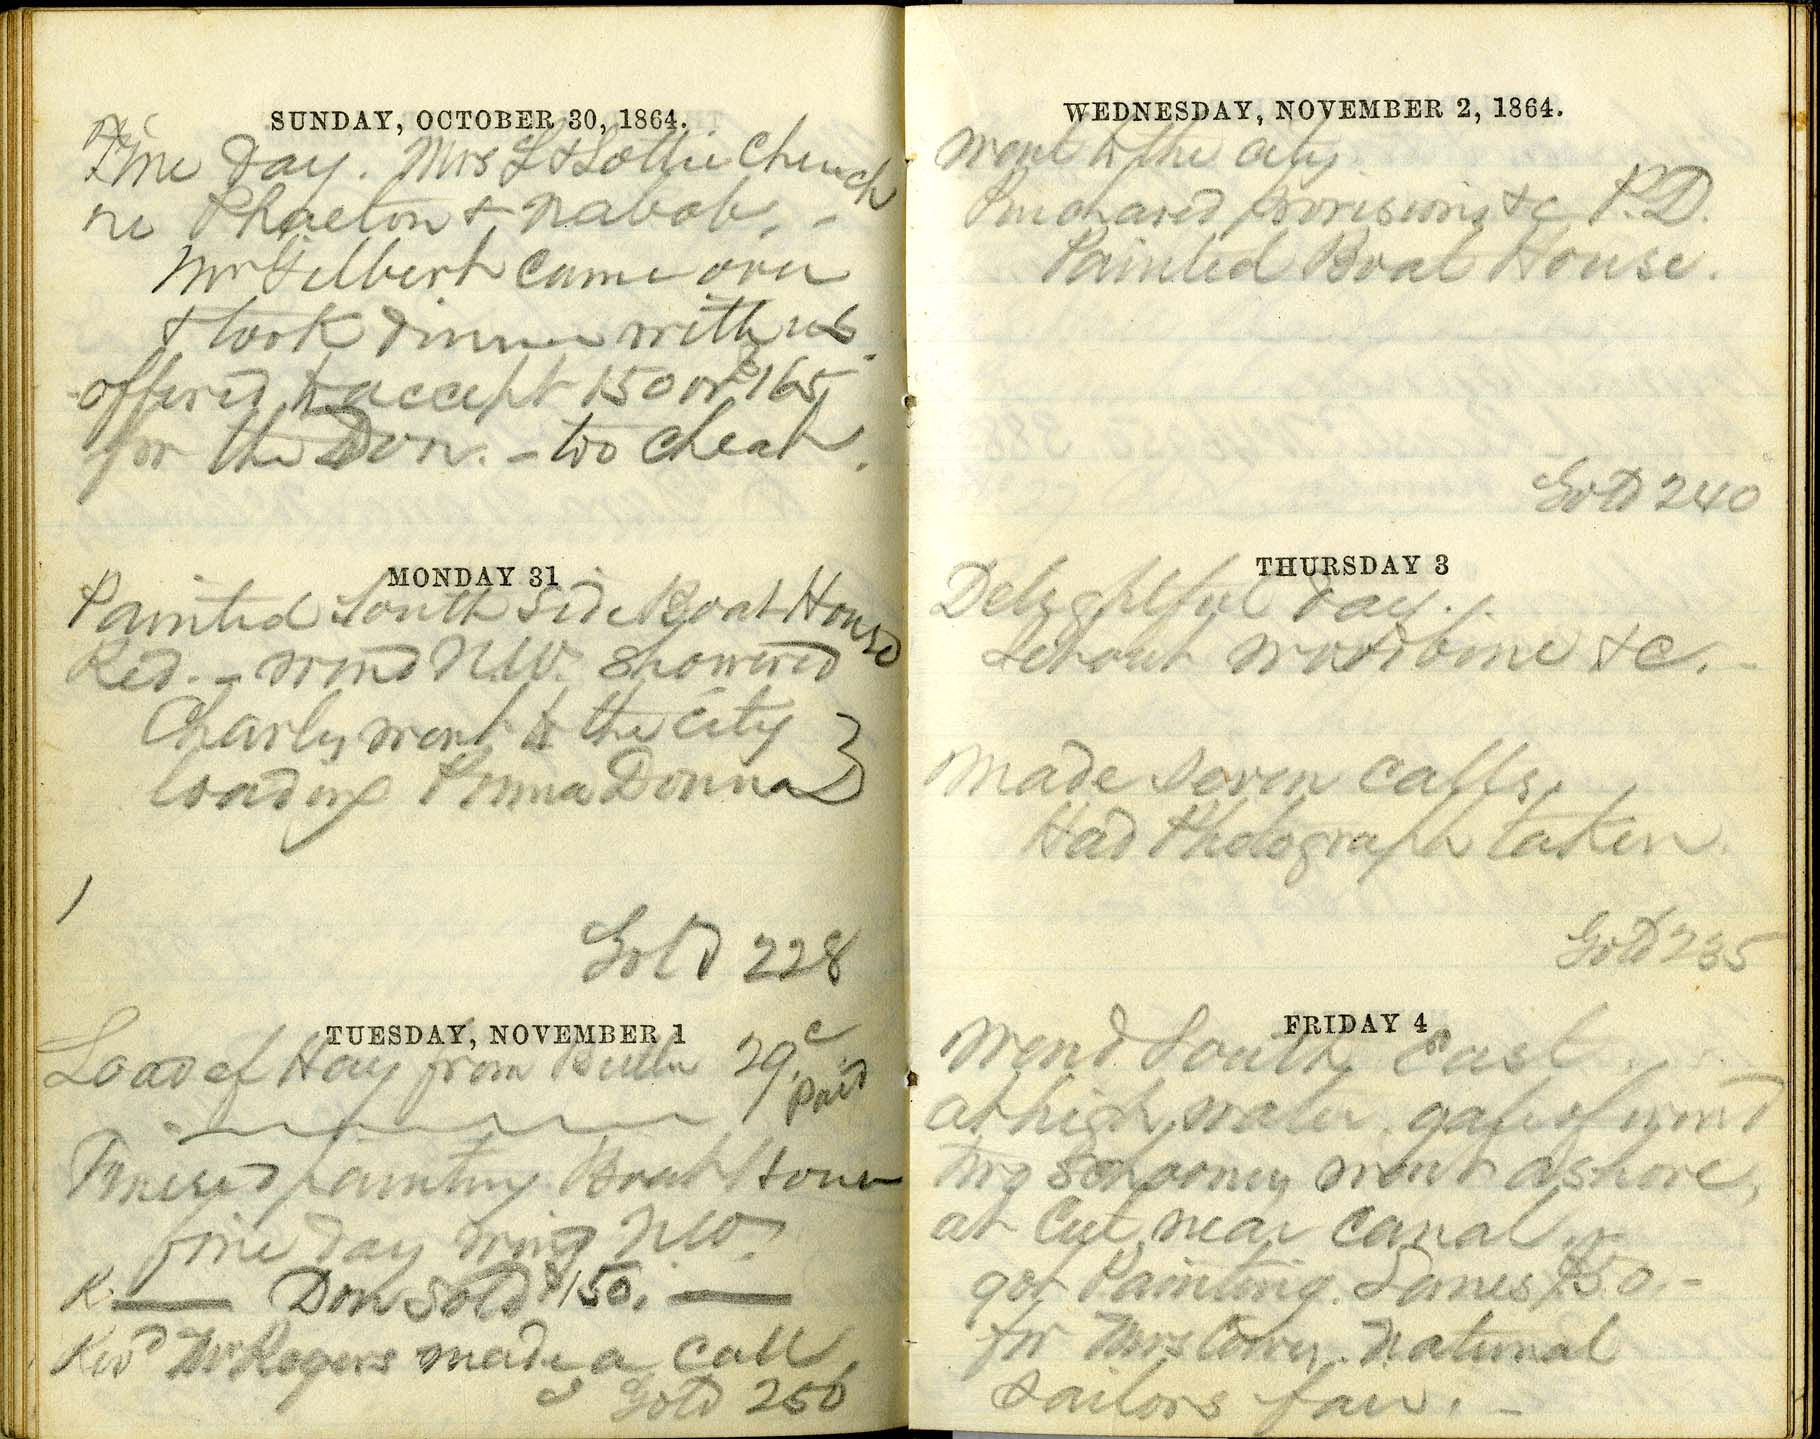 SUNDAY, OCTOBER 30, 1864.
Fine Day. Mrs L & Lottie Church
Phaeton & Nabob. -
Mr Gilbert came over
& took dinner with us.
offered to accept 150 or $165
for the Don. - too cheap.
MONDAY 31
Painted South Side Boat House
Red. - wind N.W. showered
Charly went to the city
loading Prima Donna
Gold 228
TUESDAY, NOVEMBER 1
Load of Hay from 29.c
paid
Finised painting Boat House
fine day wind N.W.
R. Don Sold $150.
Revd Mr Rogers made a call
Gold 250
WEDNESDAY, NOVEMBER 2, 1864.
Went to the city
Purchased provisions &c P.D.
Painted Boat House.
Gold 240
THURSDAY 3
Delightful day.
Setout woodbine &c. -
Made seven calls.
Had Photograph taken.
Gold 235
FRIDAY 4
Wind South East
at high water, gale of wind
schooner went ashore,
at Cut near canal.
got Painting. Lanes $50. -
for Mrs National
Sailors fair. -